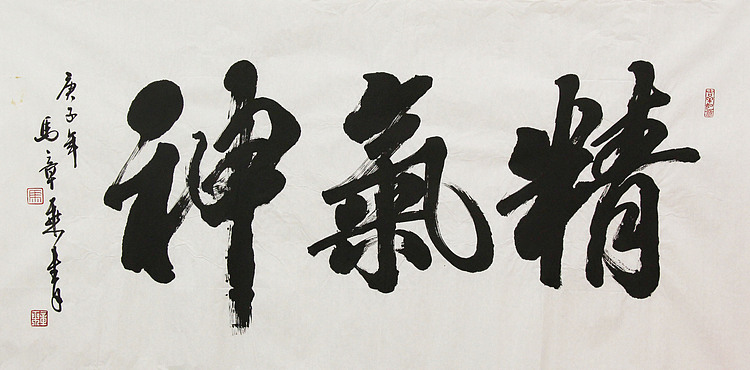 精氣神
庚子年
馬章乘書